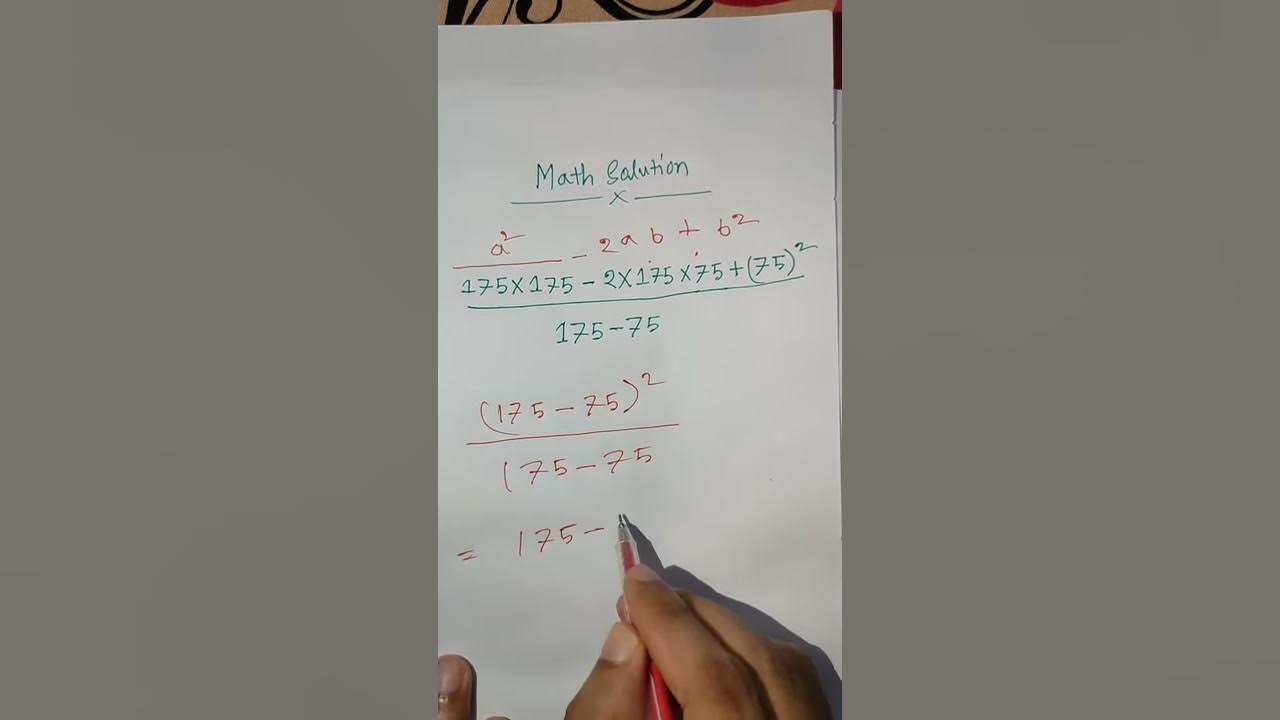 Math Salution
x
a² - 2ab + b²
175×175 - 2×175×75+(75)²
175-75
(175-75)²
175-75
= 175-